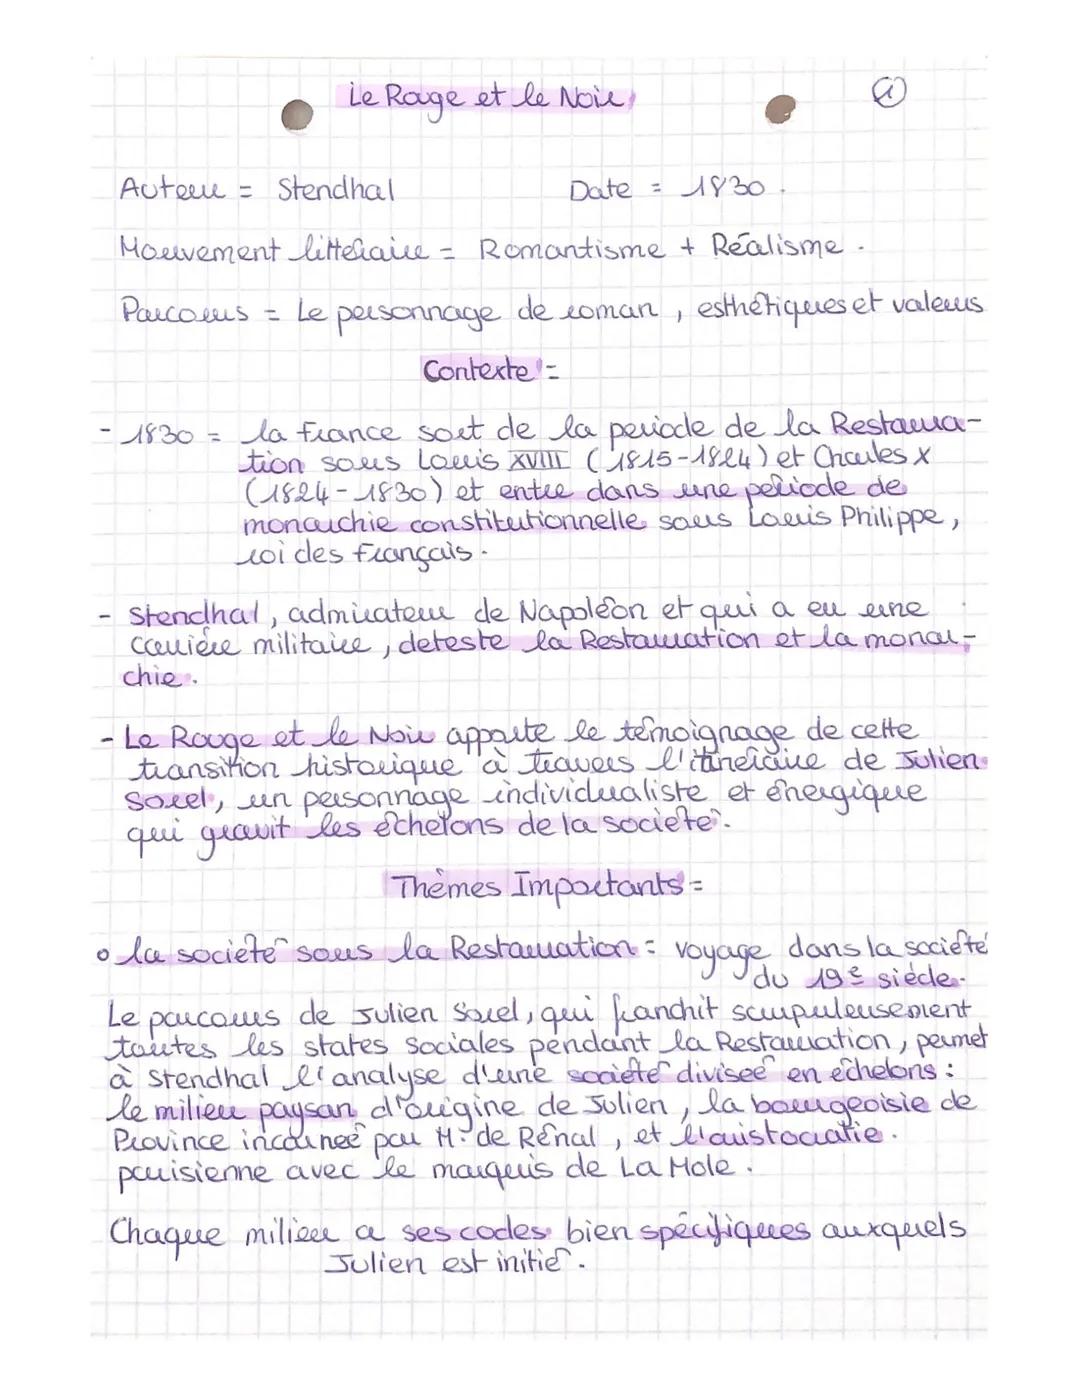 Le Rouge et le Noir
1
Auteur = Stendhal Date = 1830.
Mouvement littéraire = Romantisme + Réalisme.
Parcours = Le personnage de roman, esthétiques et valeurs
Contexte =
- 1830 = la france sort de la période de la Restaura-
tion sous Louis XVIII (1815-1824) et Charles X
(1824-1830) et entre dans une période de
monarchie constitutionnelle sous Louis Philippe,
roi des français.
- Stendhal, admirateur de Napoléon et qui a eu une
carrière militaire, deteste la Restauration et la monar-
chie.
- Le Rouge et le Noir apporte le témoignage de cette
transition historique à travers l'itinéraire de Julien
Sorel, un personnage individualiste et énergique
qui gravit les échelons de la société.
Thèmes Importants =
o la société sous la Restauration = voyage dans la société
du 19e siècle.
Le parcours de Julien Sorel, qui franchit scrupuleusement
toutes les states sociales pendant la Restauration, permet
à Stendhal l'analyse d'une société divisée en échelons :
le milieu paysan d'origine de Julien, la bourgeoisie de
Province incarnée par M. de Rênal, et l'aristocratie.
parisienne avec le marquis de La Mole.
Chaque milieu a ses codes bien spécifiques auxquels
Julien est initié.